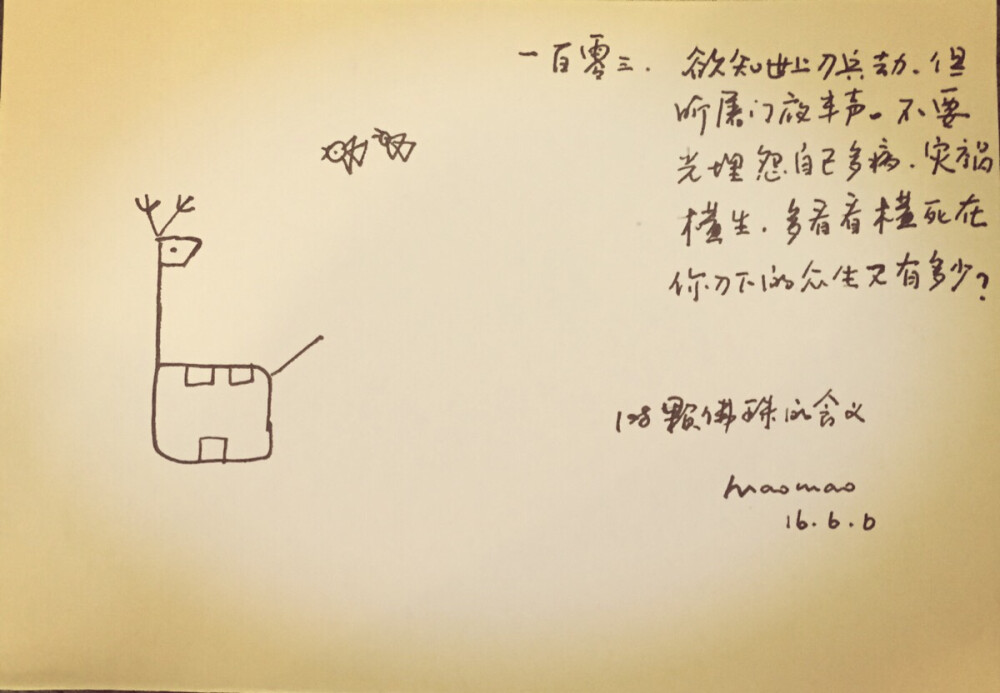 一百零三. 欲知世上刀兵劫. 但
听屠门夜半声。不要
光埋怨自己多病. 灾祸
横生. 多看看横死在
你刀下的众生又有多少?
108颗佛珠的含义
maomao
16.6.6